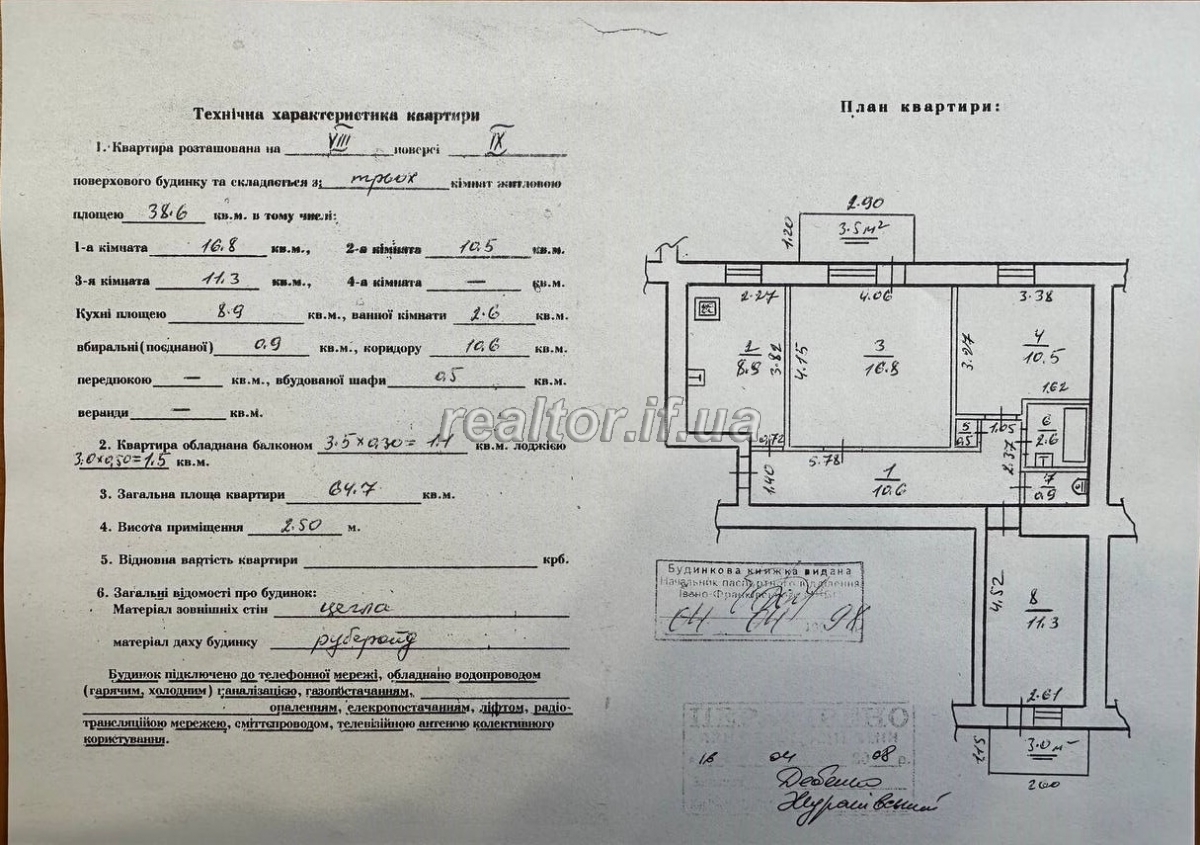 Технічна характеристика квартири
1. Квартира розташована на VIII поверсі IX
поверхового будинку та складається з: трьох кімнат житловою
площею 38.6 кв.м. в тому числі:
1-а кімната 16.8 кв.м., 2-а кімната 10.5 кв.м.
3-я кімната 11.3 кв.м., 4-а кімната — кв.м.
Кухні площею 8.9 кв.м., ванної кімнати 2.6 кв.м.
вбиральні(поєднаної) 0.9 кв.м., коридору 10.6 кв.м.
передпокою — кв.м., вбудованої шафи 0.5 кв.м.
веранди — кв.м.
2. Квартира обладнана балконом 3.5×0,30=1.1 кв.м. лоджією
3.0×0,50=1.5 кв.м.
3. Загальна площа квартири 64.7 кв.м.
4. Висота приміщення 2.50 м.
5. Відновна вартість квартири крб.
6. Загальні відомості про будинок:
Матеріал зовнішніх стін цегла
матеріал даху будинку рубероїд
Будинок підключено до телефонної мережі, обладнано водопроводом
(гарячим, холодним) каналізацією, газопостачанням,
опаленням, елекропостачанням, ліфтом, радіо-
трансляційою мережею, сміттєпроводом, телевізійною антеною колективного
користування.
План квартири:
2.90
1.20
3.5 м²
2.27
4.06
3.38
2
8.9
3.82
4.15
3
16.8
3.27
4
10.5
1.62
5
0.5
1.05
6
2.6
0.72
5.78
2.37
1.40
1
10.6
7
0.9
4.52
8
11.3
2.61
1.15
3.0 м²
260
Будинкова книжка видана
Начальник паспортного відділення
04 04 1998
16 04 2008 р.
realtor.if.ua